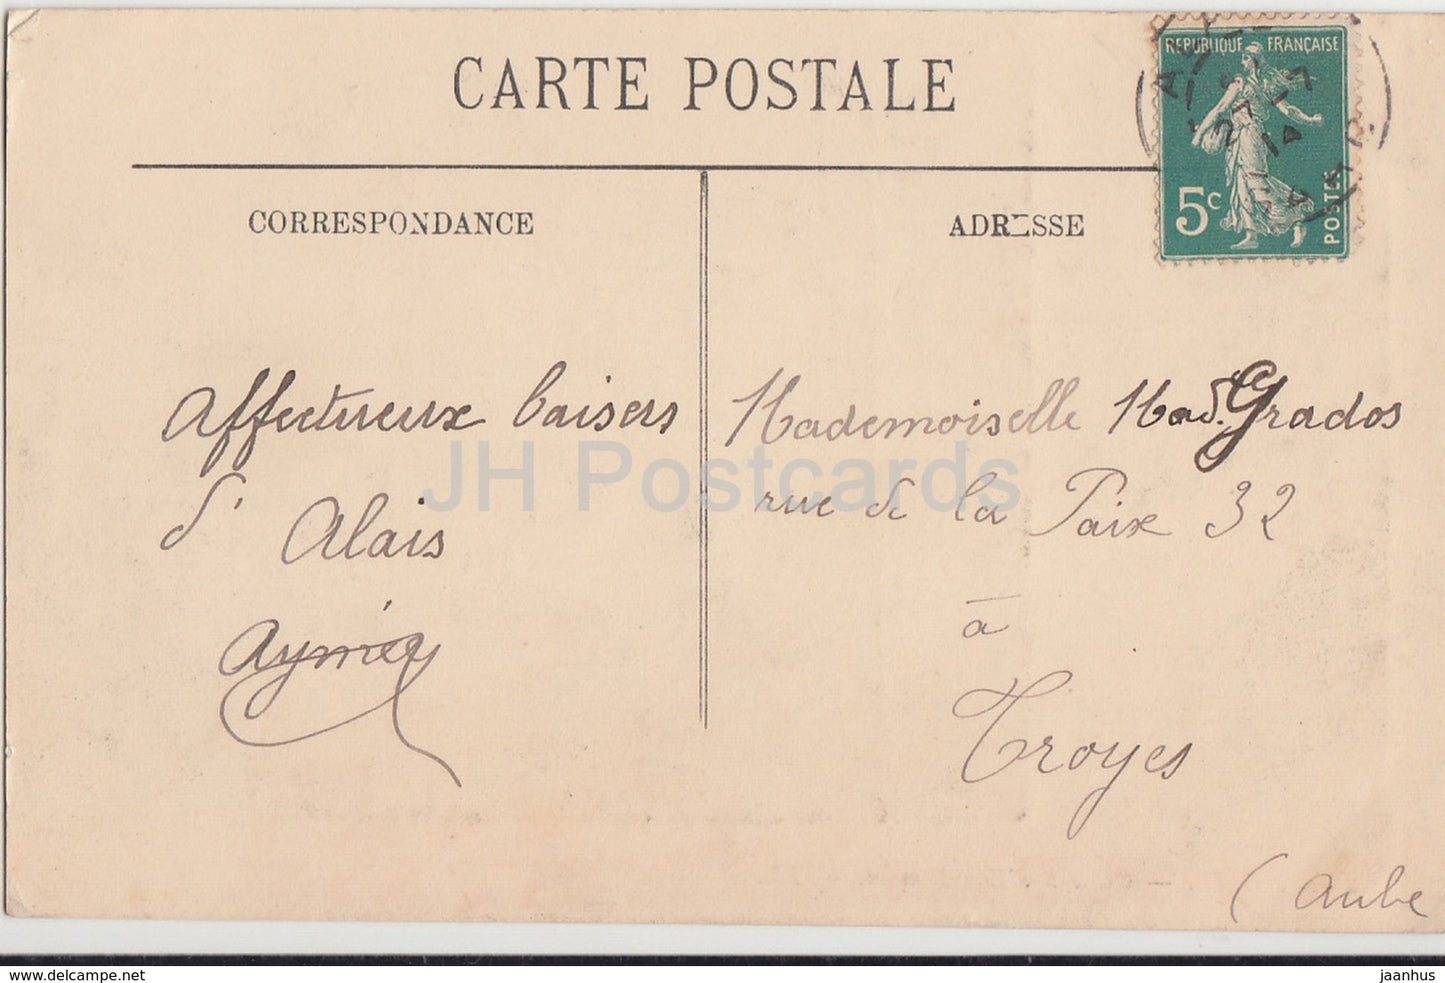 CARTE POSTALE
REPUBLIQUE FRANÇAISE
27 - 7
14
5c
POSTES
CORRESPONDANCE
ADRESSE
Affectueux baisers
d'Alais
Mademoiselle Mad. Grados
rue de la Paix 32
à
Troyes
(Aube
JH Postcards
jaanhus